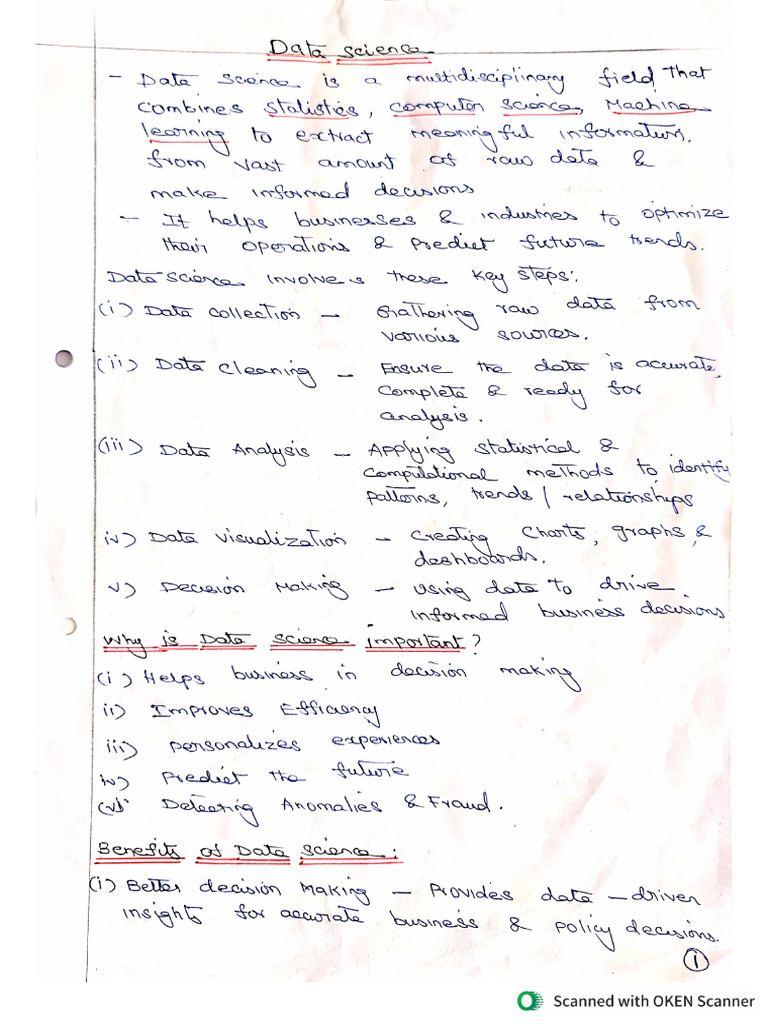 Data Science
- Data Science is a multidisciplinary field that
combines Statistics, computer science, Machine
learning to extract meaningful information.
from vast amount of raw data &
make informed decisions
- It helps businesses & industries to optimize
their operations & Predict future trends.
Data Science involves these key steps:
(i) Data Collection - Gathering raw data from
various sources.
(ii) Data Cleaning - Ensure the data is accurate,
Complete & ready for
analysis.
(iii) Data Analysis - Applying Statistical &
Computational methods to identify
patterns, trends / relationships
iv) Data Visualization - Creating Charts, graphs, &
dashboards.
v) Decision Making - Using data to drive
informed business decisions
Why is Data Science important?
(i) Helps business in decision making
ii) Improves Efficiency
iii) Personalizes experiences
iv) Predict the future
(v) Detecting Anomalies & Fraud.
Benefits of Data Science:
(i) Better decision Making - Provides data - driven
insights for accurate business & policy decisions.
1
Scanned with OKEN Scanner